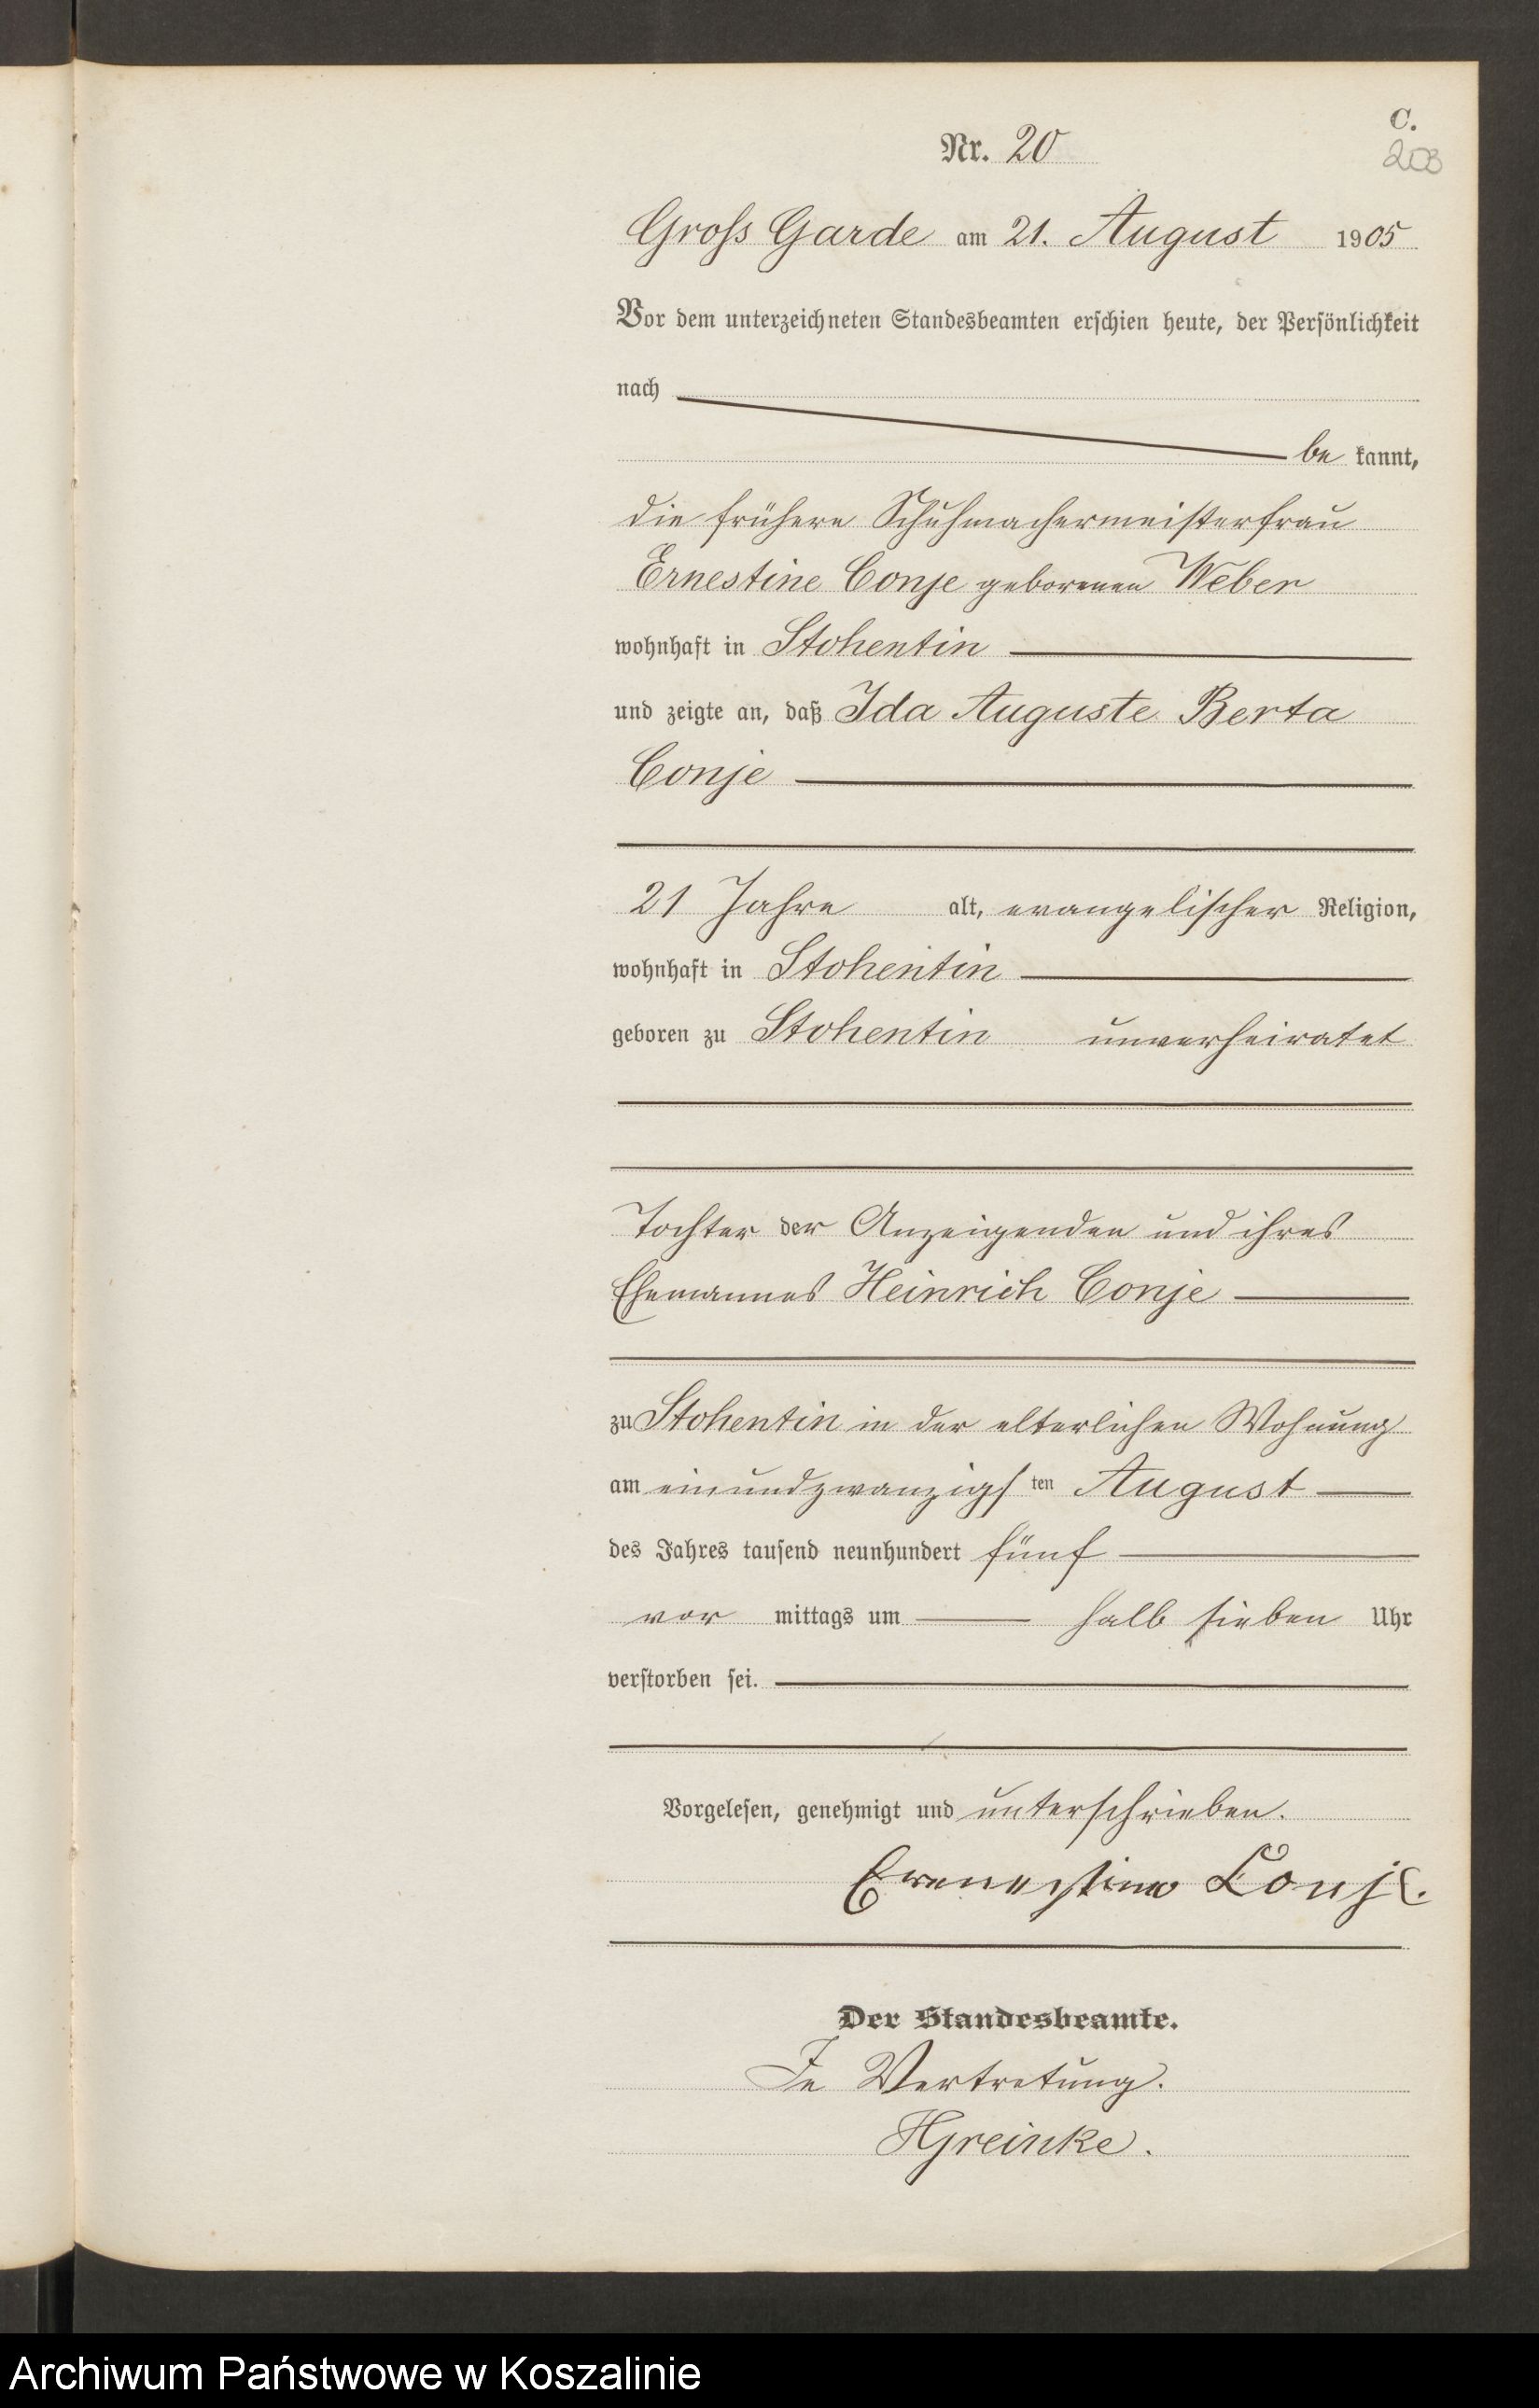 C.
Nr. 20
203
Gross Garde am 21. August 1905
Vor dem unterzeichneten Standesbeamten erschien heute, der Persönlichkeit
nach
be kannt,
die frühere Schuhmachermeisterfrau
Ernestine Conje geborenen Weber
wohnhaft in Stohentin
und zeigte an, daß Ida Auguste Berta
Conje
21 Jahre alt, evangelischer Religion,
wohnhaft in Stohentin
geboren zu Stohentin unverheiratet
Tochter der Anzeigenden und ihres
Ehemannes Heinrich Conje
zu Stohentin in der elterlichen Wohnung
am einundzwanzigsten August
des Jahres tausend neunhundert fünf
vor mittags um halb sieben Uhr
verstorben sei.
Vorgelesen, genehmigt und unterschrieben.
Conje.
Der Standesbeamte.
In Vertretung.
HGreinke.
Archiwum Państwowe w Koszalinie